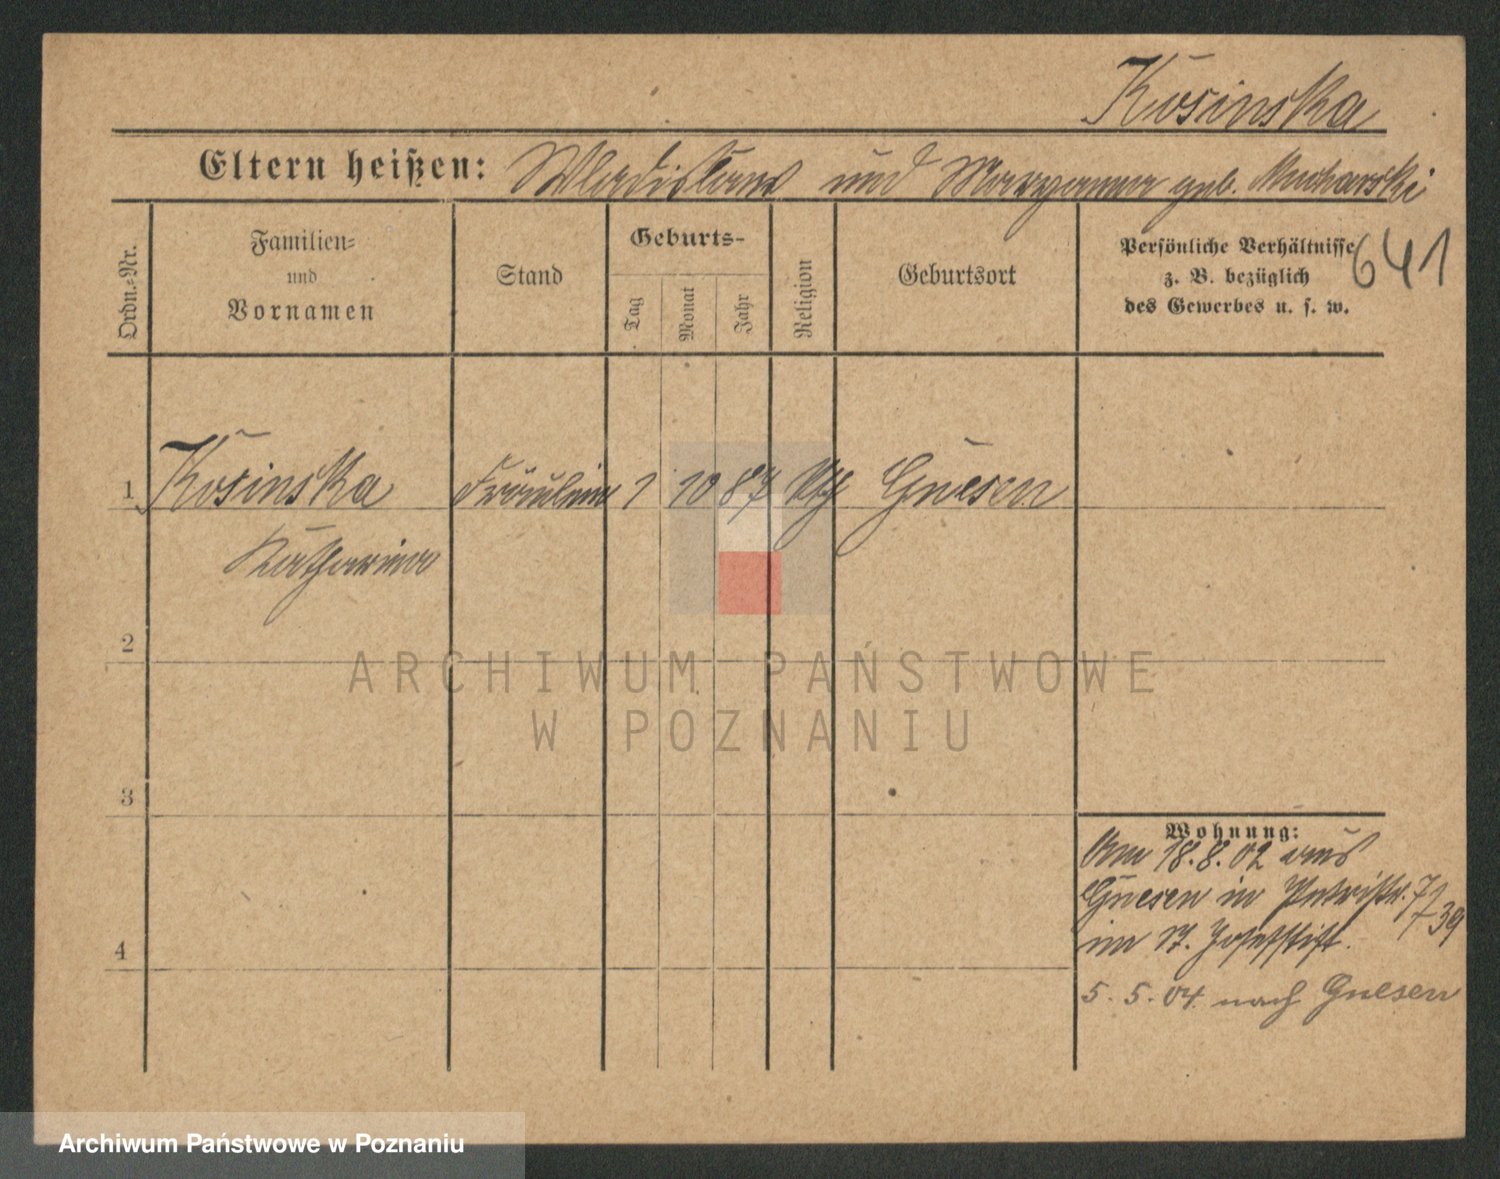 Kosinska
Eltern heißen: Wladislaus und Maryanna geb. Mucharski
Ordn.-Nr.
Familien-
und
Vornamen
Stand
Geburts-
Tag
Monat
Jahr
Religion
Geburtsort
Persönliche Verhältnisse
z. B. bezüglich
des Gewerbes u. s. w.
641
1 Kosinska Fräulein 1 10 87 kth Gnesen
Katharina
2
ARCHIWUM PAŃSTWOWE
W POZNANIU
3
Wohnung:
Am 18.8.02 aus
Gnesen in Petristr. 7
739
im St. Josefstift.
4
5.5.04. nach Gnesen
Archiwum Państwowe w Poznaniu